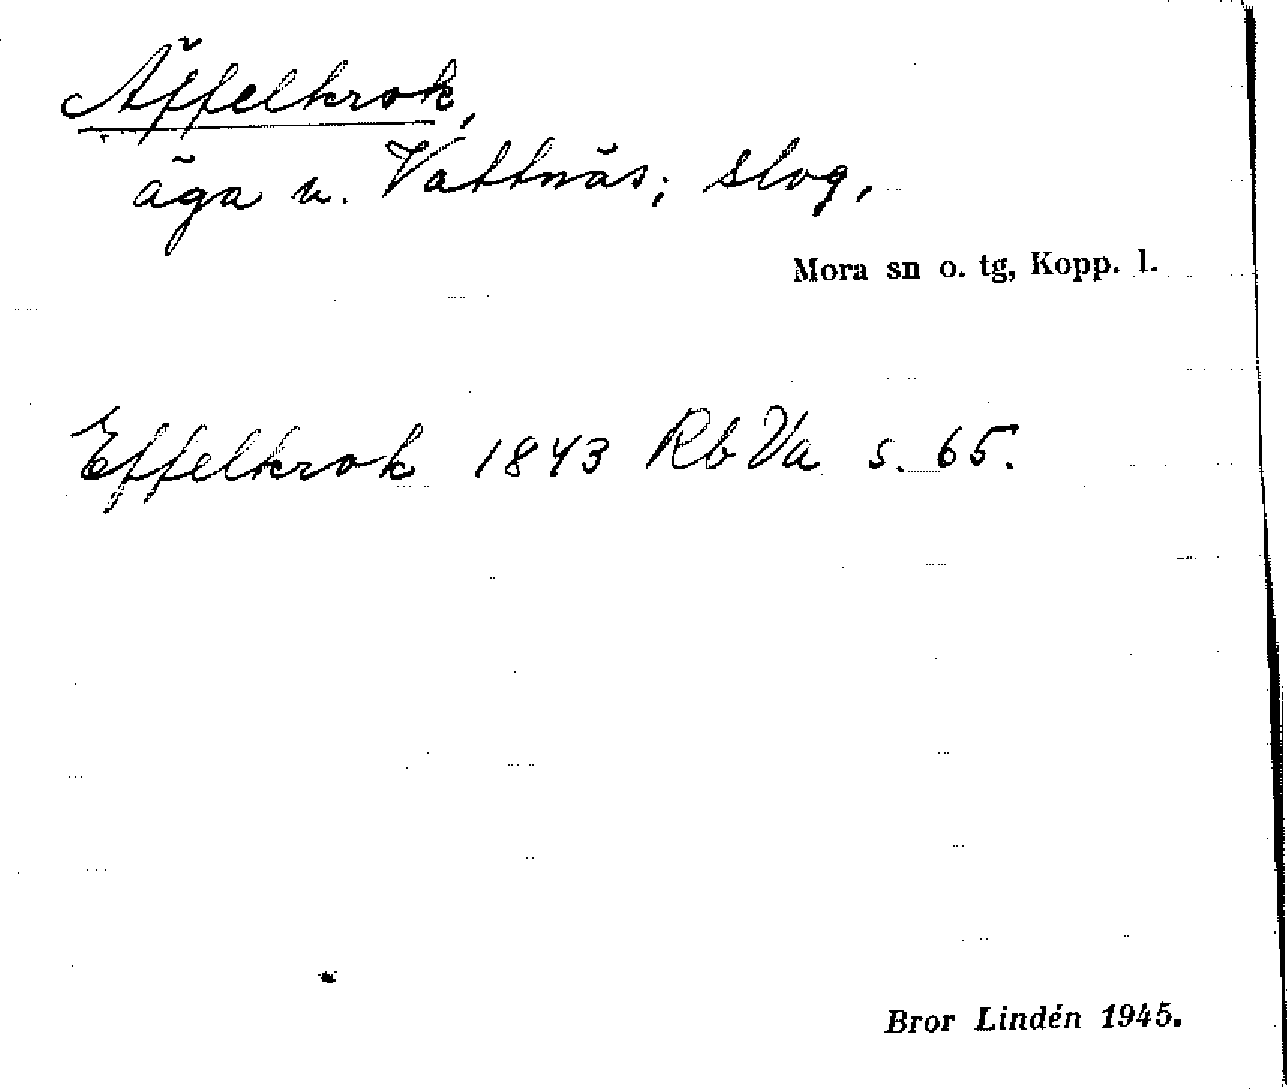 Äffelkrok,
äga u. Vattnäs; slog,
Mora sn o. tg, Kopp. l.
Effelkrok 1843 Rb Va s. 65.
Bror Lindén 1945.